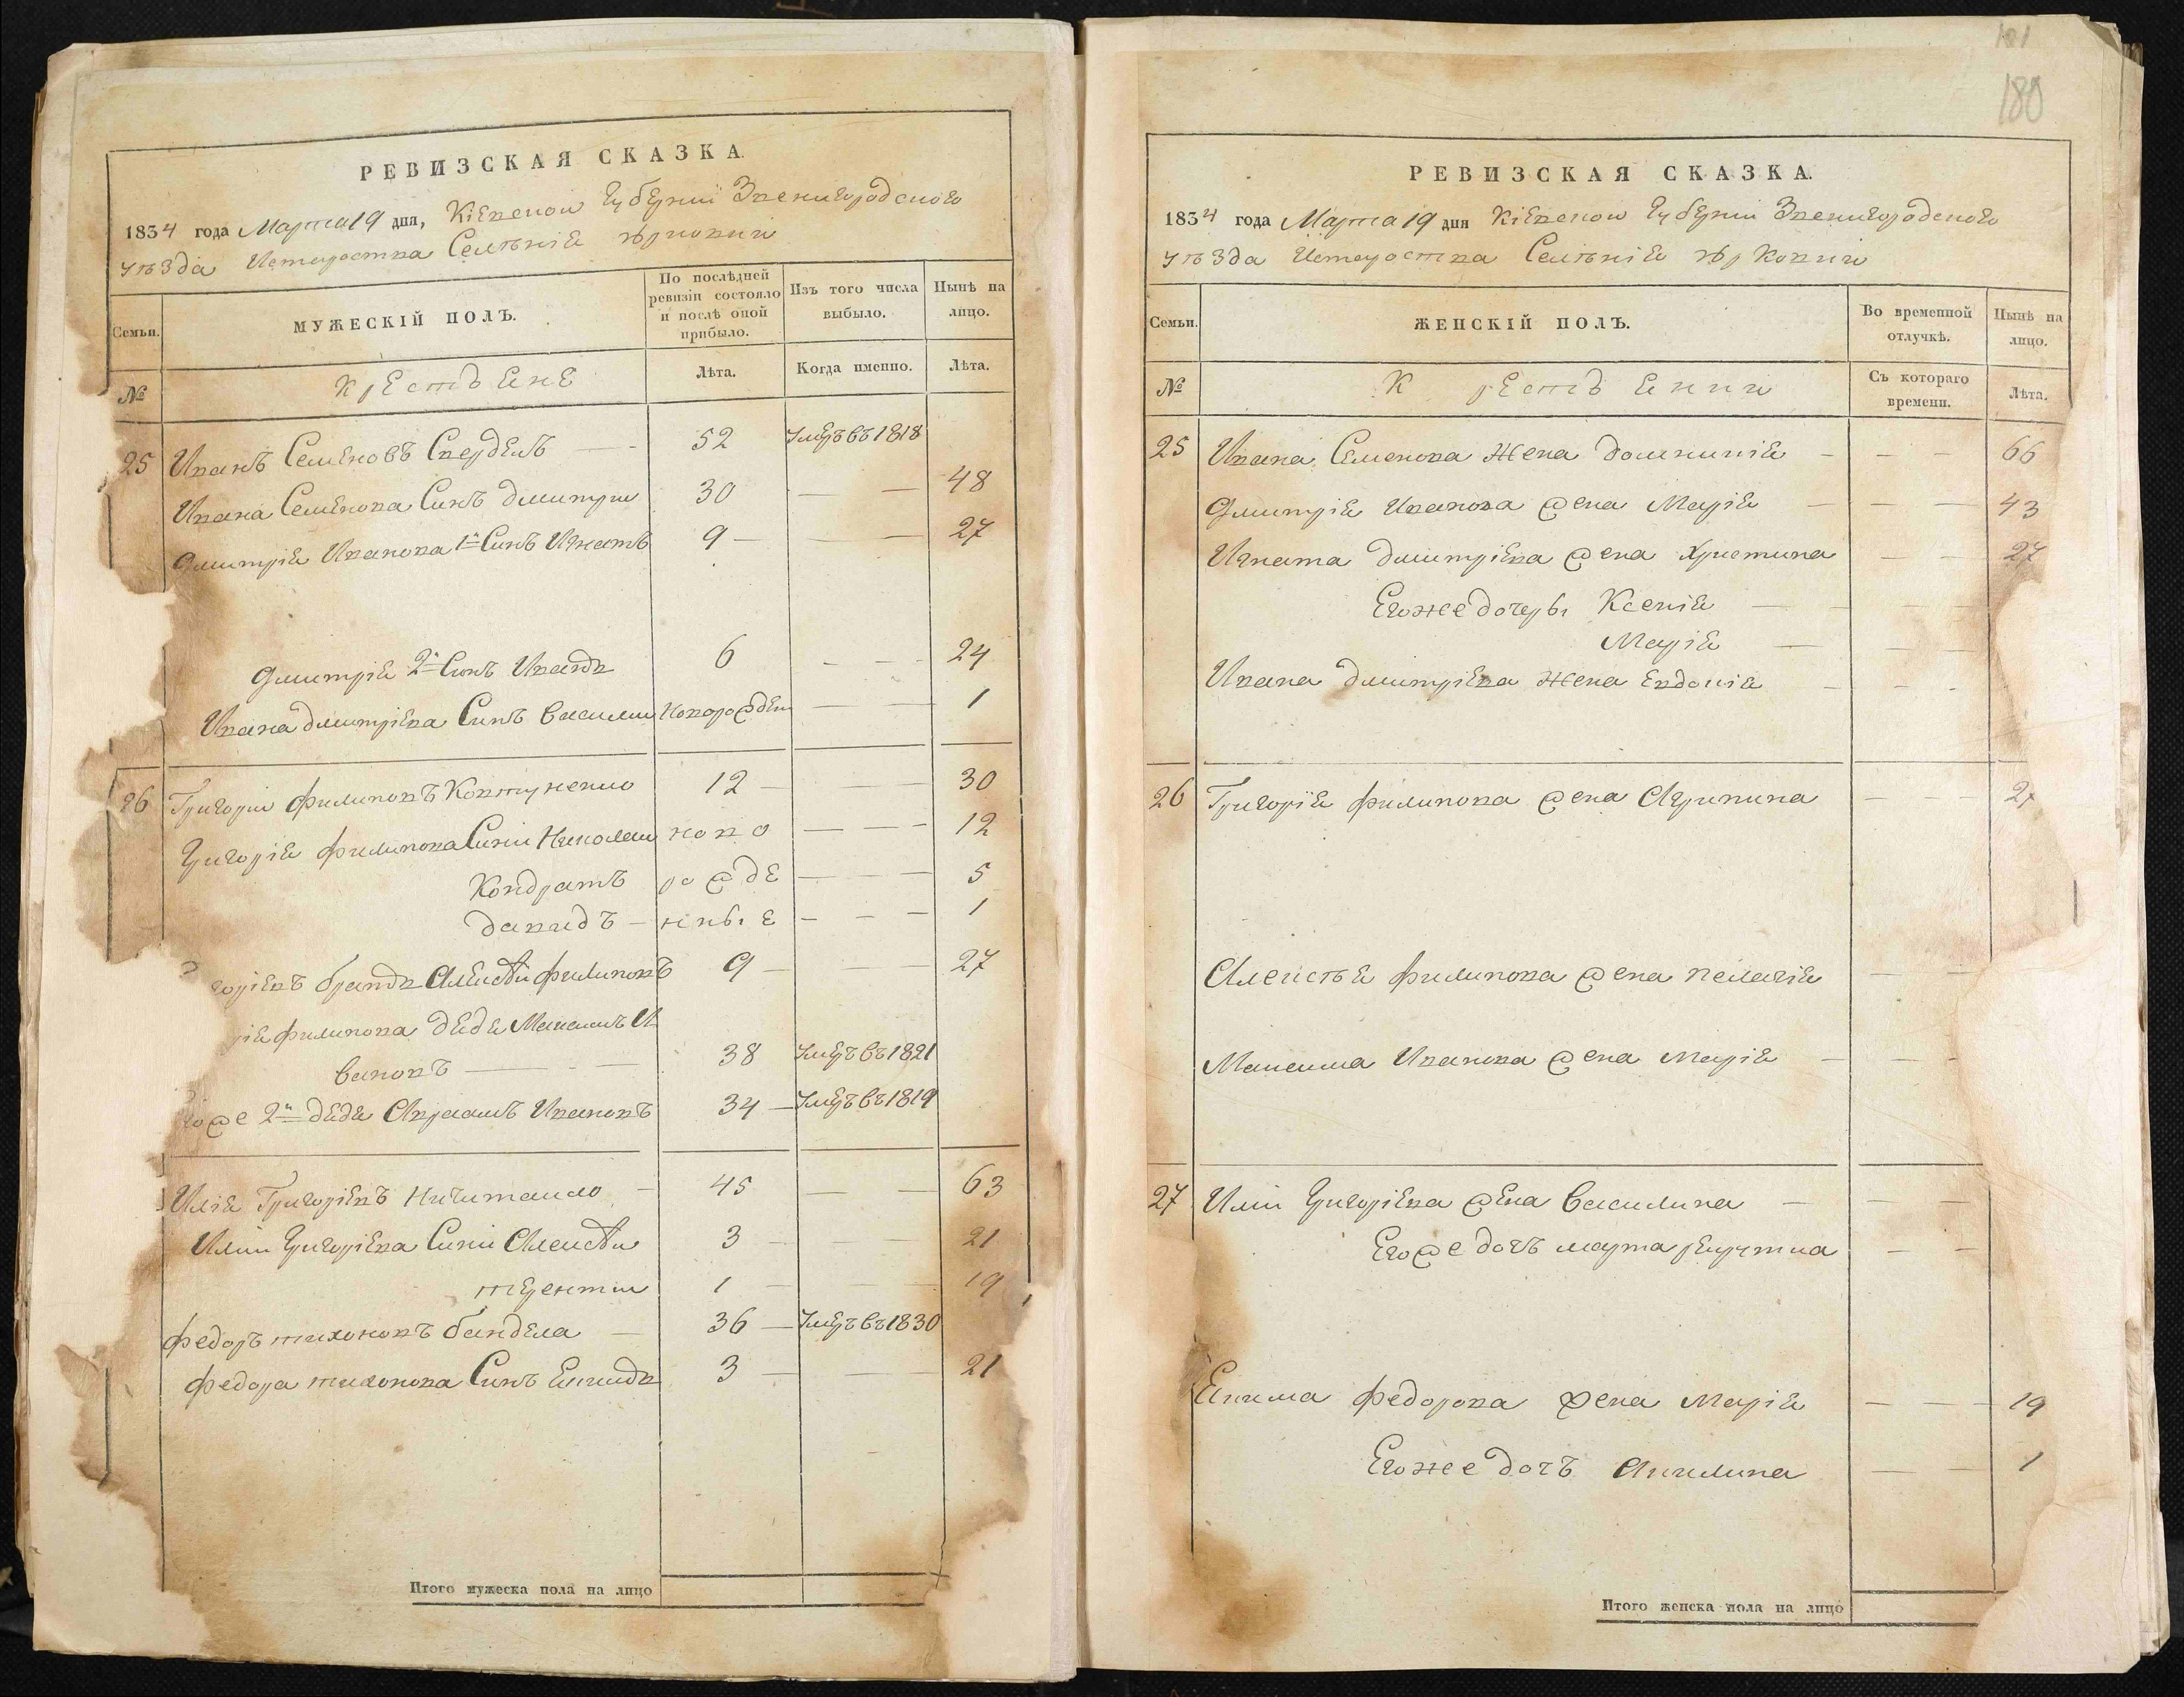 РЕВИЗСКАЯ СКАЗКА.
1834 года Марта 19 дня, Кіевской Губерніи Звенигородского
уѣзда Селѣнія
Семьи.
МУЖЕСКІЙ ПОЛЪ.
По послѣдней ревизіи состояло и послѣ оной прибыло.
Изъ того числа выбыло.
Нынѣ на лицо.
№
Крестьяне
Лѣта.
Когда именно.
Лѣта.
25 Иванъ Семеновъ 52 умеръ въ 1818
Ивана Семенова Синъ Дмитри 30 — — 48
Дмитрія Иванова 1й Синъ Игнатъ 9 — — — 27
Дмитрія 2й Синъ Иванъ 6 — — 24
Ивана Дмитріева Синъ Васили новорожден — — 1
26 Григори Филиповъ Ковтуненко 12 — — 30
Григорія Филипова Сини Николаи ново — — 12
Кондратъ рожде — — — 5
Давидъ — нные — — — 1
горіевъ братъ Алексѣи Филиповъ 9 — — 27
рія Филипова дядя Максимъ И
вановъ — — 38 умеръ въ 1821
гоже 2й дядя Авраамъ Ивановъ 34 — умеръ въ 1819
Илія Григоріевъ Ничитаило — 45 — — 63
Иліи Григоріева Сини Алексѣи 3 — — 21
терентии 1 — — 19
Федоръ тихоновъ бандела — 36 — умеръ въ 1830
Федора тихонова Синъ Екимъ 3 — — 21
Итого мужеска пола на лицо
181
180
РЕВИЗСКАЯ СКАЗКА.
1834 года Марта 19 дня Кіевской Губерніи Звенигородского
уѣзда Селѣнія
Семьи.
ЖЕНСКІЙ ПОЛЪ.
Во временной отлучкѣ.
Нынѣ на лицо.
№
Крестьянки
Съ котораго времени.
Лѣта.
25 Ивана Семенова жена Домникія — — — 66
Дмитрія Иванова жена Марія — — — 43
Игната Дмитріева жена Христина — — 27
Егоже дочеры Ксенія —
Марія — — —
Ивана Дмитріева жена Евдокія — — —
26 Григорія Филипова жена Агрипина — — 27
Алексѣя Филипова жена пелагія — —
Максима Иванова жена марія — — —
27 Иліи Григоріева жена Василина — — —
Егоже дочъ марта — —
Екима Федорова жена Марія — — — 19
Егоже дочъ Акилина — — 1
Итого женска пола на лицо